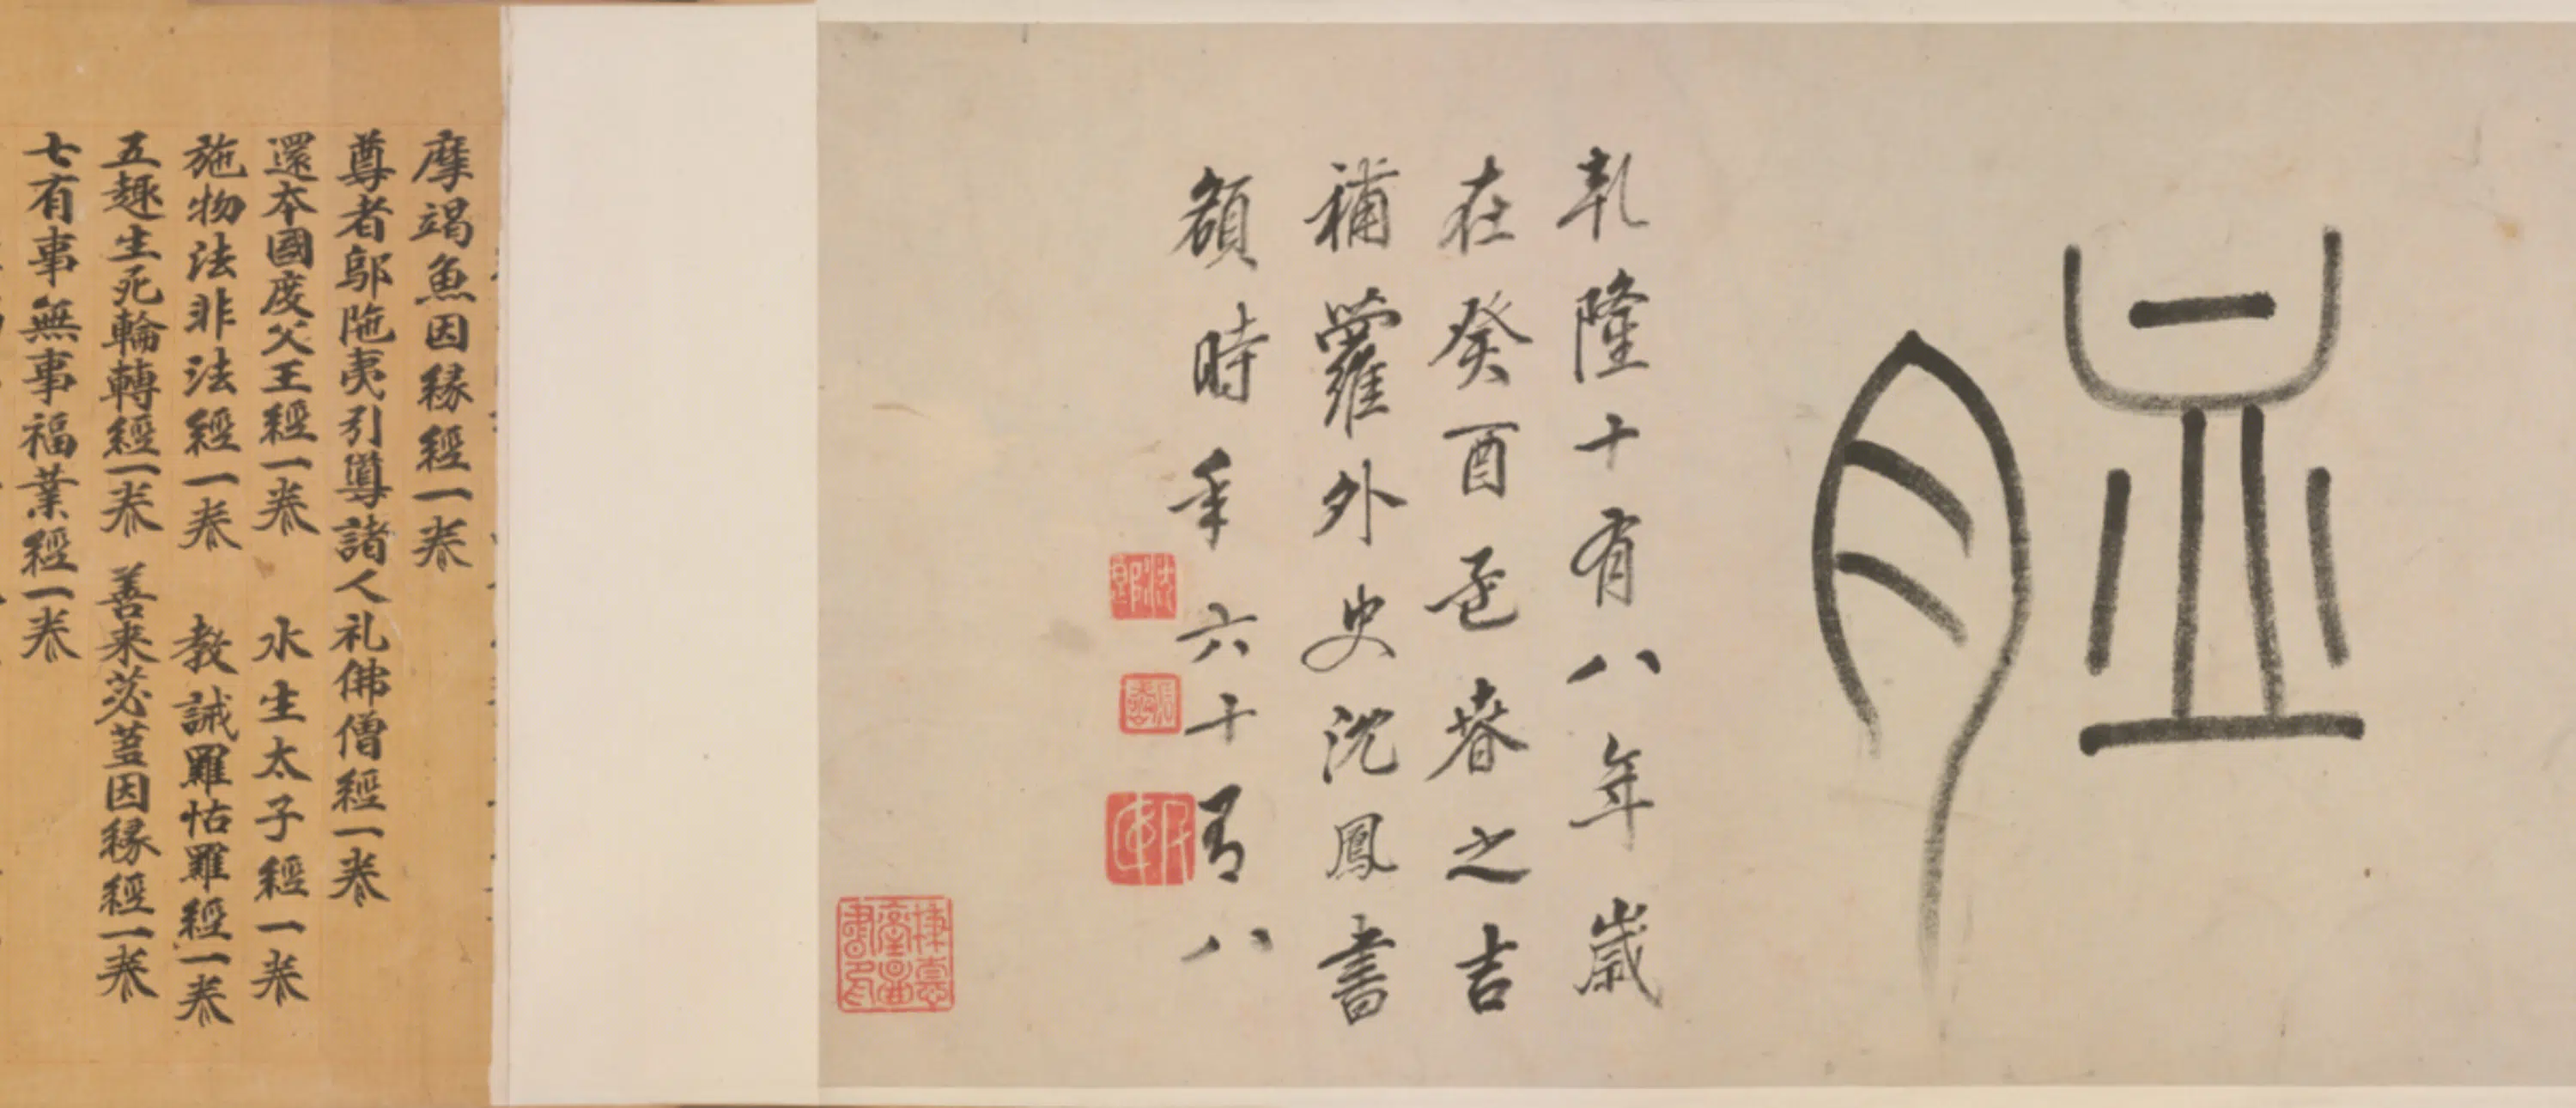 乹隆十有八年歲
在癸酉孟春之吉
補蘿外史沈鳳書
額時年六十有八
摩竭魚因緣經一卷
尊者鄔陁夷引導諸人礼佛僧經一卷
還本國度父王經一卷 水生太子經一卷
施物法非法經一卷 教誡羅怙羅經一卷
五趣生死輪轉經一卷 善来苾蒭因緣經一卷
七有事無事福業經一卷